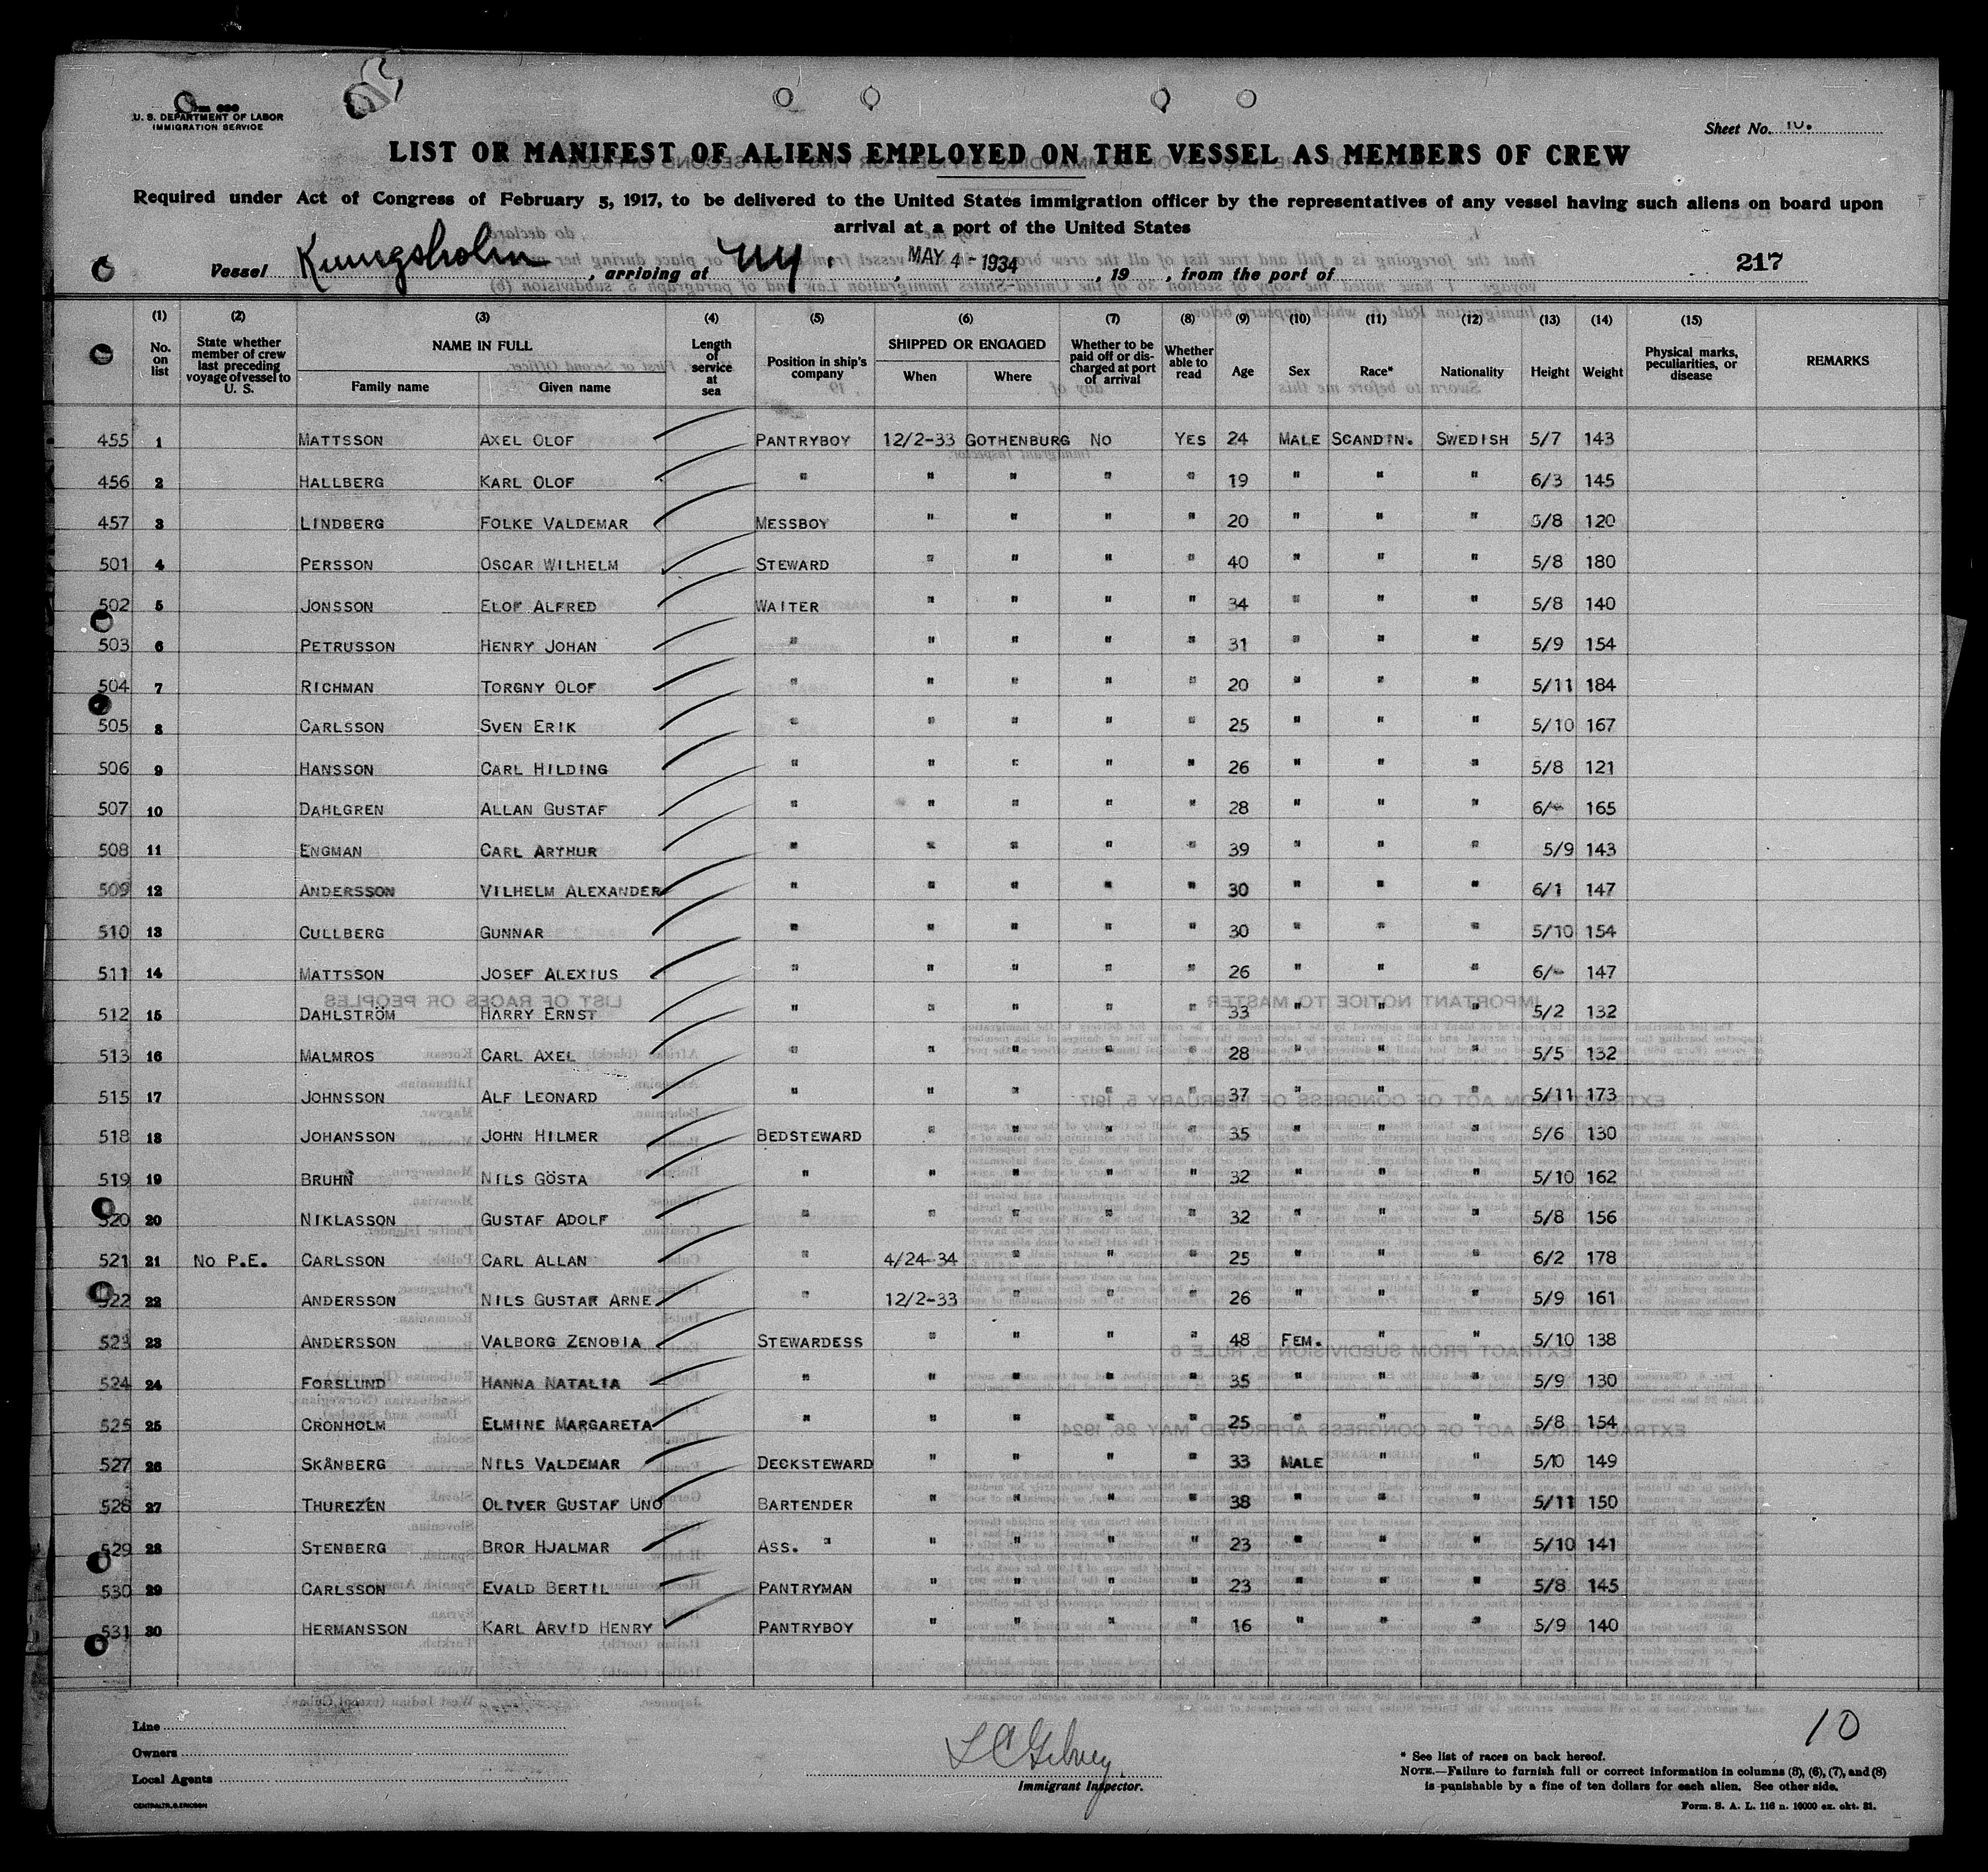 U. S. DEPARTMENT OF LABOR
IMMIGRATION SERVICE
Sheet No. 10.
LIST OR MANIFEST OF ALIENS EMPLOYED ON THE VESSEL AS MEMBERS OF CREW
Required under Act of Congress of February 5, 1917, to be delivered to the United States immigration officer by the representatives of any vessel having such aliens on board upon
arrival at a port of the United States
Vessel Kungsholm, arriving at NY., MAY 4 - 1934, 19 , from the port of 217
(1) (2) (3) (4) (5) (6) (7) (8) (9) (10) (11) (12) (13) (14) (15)
No. on list State whether member of crew last preceding voyage of vessel to U. S. NAME IN FULL Family name Given name Length of service at sea Position in ship's company SHIPPED OR ENGAGED When Where Whether to be paid off or discharged at port of arrival Whether able to read Age Sex Race* Nationality Height Weight Physical marks, peculiarities, or disease REMARKS
455 1 MATTSSON AXEL OLOF PANTRYBOY 12/2-33 GOTHENBURG NO YES 24 MALE SCANDIN. SWEDISH 5/7 143
456 2 HALLBERG KARL OLOF " " " " " 19 " " " 6/3 145
457 3 LINDBERG FOLKE VALDEMAR MESSBOY " " " " 20 " " " 5/8 120
501 4 PERSSON OSCAR WILHELM STEWARD " " " " 40 " " " 5/8 180
502 5 JONSSON ELOF ALFRED WAITER " " " " 34 " " " 5/8 140
503 6 PETRUSSON HENRY JOHAN " " " " " 31 " " " 5/9 154
504 7 RICHMAN TORGNY OLOF " " " " " 20 " " " 5/11 184
505 8 CARLSSON SVEN ERIK " " " " " 25 " " " 5/10 167
506 9 HANSSON CARL HILDING " " " " " 26 " " " 5/8 121
507 10 DAHLGREN ALLAN GUSTAF " " " " " 28 " " " 6/- 165
508 11 ENGMAN CARL ARTHUR " " " " " 39 " " " 5/9 143
509 12 ANDERSSON VILHELM ALEXANDER " " " " " 30 " " " 6/1 147
510 13 CULLBERG GUNNAR " " " " " 30 " " " 5/10 154
511 14 MATTSSON JOSEF ALEXIUS " " " " " 26 " " " 6/- 147
512 15 DAHLSTRÖM HARRY ERNST " " " " " 33 " " " 5/2 132
513 16 MALMROS CARL AXEL " " " " " 28 " " " 5/5 132
515 17 JOHNSSON ALF LEONARD " " " " " 37 " " " 5/11 173
518 18 JOHANSSON JOHN HILMER BEDSTEWARD " " " " 35 " " " 5/6 130
519 19 BRUHN NILS GÖSTA " " " " " 32 " " " 5/10 162
520 20 NIKLASSON GUSTAF ADOLF " " " " " 32 " " " 5/8 156
521 21 NO P.E. CARLSSON CARL ALLAN " 4/24-34 " " " 25 " " " 6/2 178
522 22 ANDERSSON NILS GUSTAF ARNE " 12/2-33 " " " 26 " " " 5/9 161
523 23 ANDERSSON VALBORG ZENOBIA STEWARDESS " " " " 48 FEM. " " 5/10 138
524 24 FORSLUND HANNA NATALIA " " " " " 35 " " " 5/9 130
525 25 CRONHOLM ELMINE MARGARETA " " " " " 25 " " " 5/8 154
527 26 SKÅNBERG NILS VALDEMAR DECKSTEWARD " " " " 33 MALE " " 5/10 149
528 27 THUREZÉN OLIVER GUSTAF UNO BARTENDER " " " " 38 " " " 5/11 150
529 28 STENBERG BROR HJALMAR ASS. " " " " " 23 " " " 5/10 141
530 29 CARLSSON EVALD BERTIL PANTRYMAN " " " " 23 " " " 5/8 145
531 30 HERMANSSON KARL ARVID HENRY PANTRYBOY " " " " 16 " " " 5/9 140
10
Line
Owners
Local Agents
Immigrant Inspector.
* See list of races on back hereof.
NOTE.—Failure to furnish full or correct information in columns (3), (6), (7), and (8)
is punishable by a fine of ten dollars for each alien. See other side.
CENTRALTR., G. ERICSON
Form. S. A. L. 116 n. 10000 ex. okt. 31.